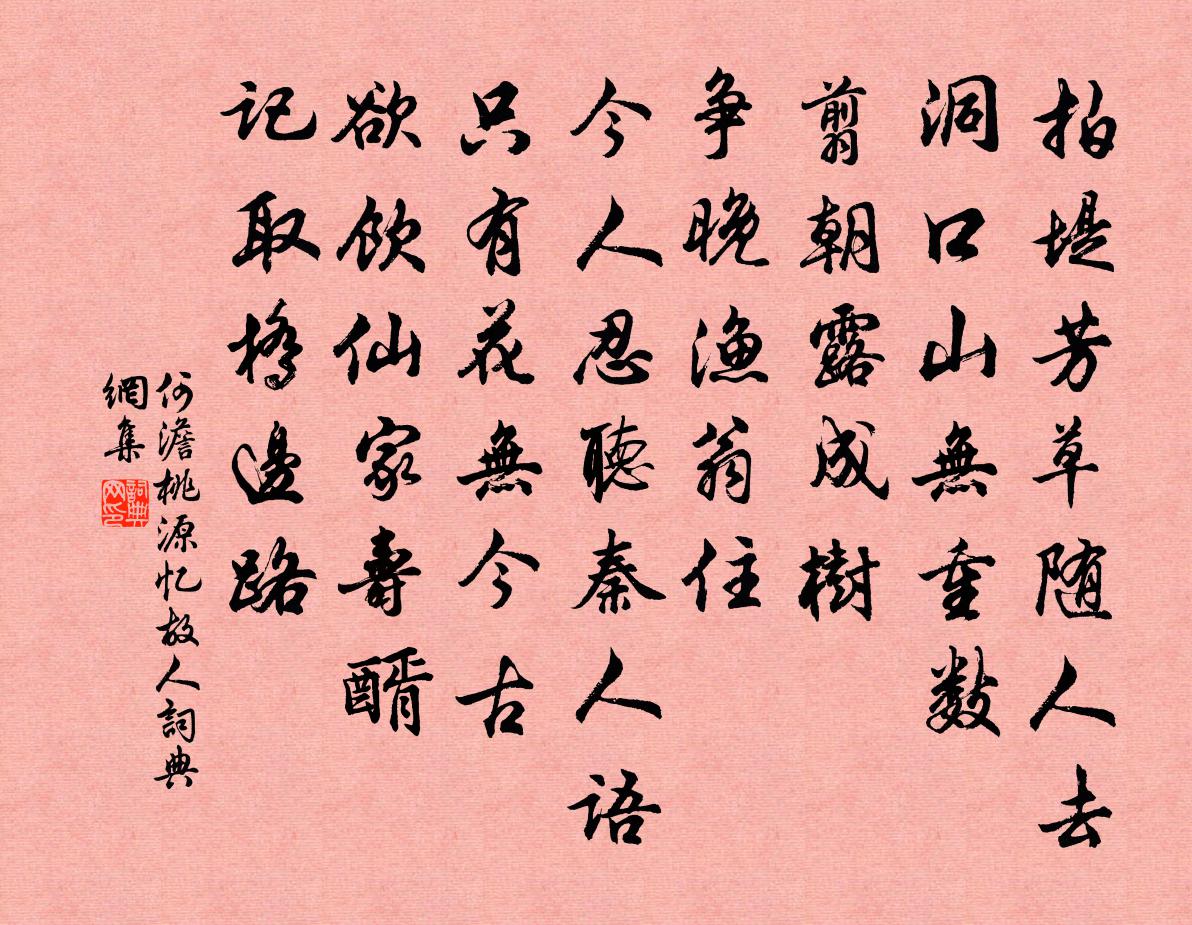 拍堤芳草随人去
洞口山無重数
翦朝露成樹
争晚渔翁住
今人忍聽秦人语
只有花無今古
欲飲仙家壽醑
记取橋邊路
何澹桃源忆故人詞典
網集
詞典
网印